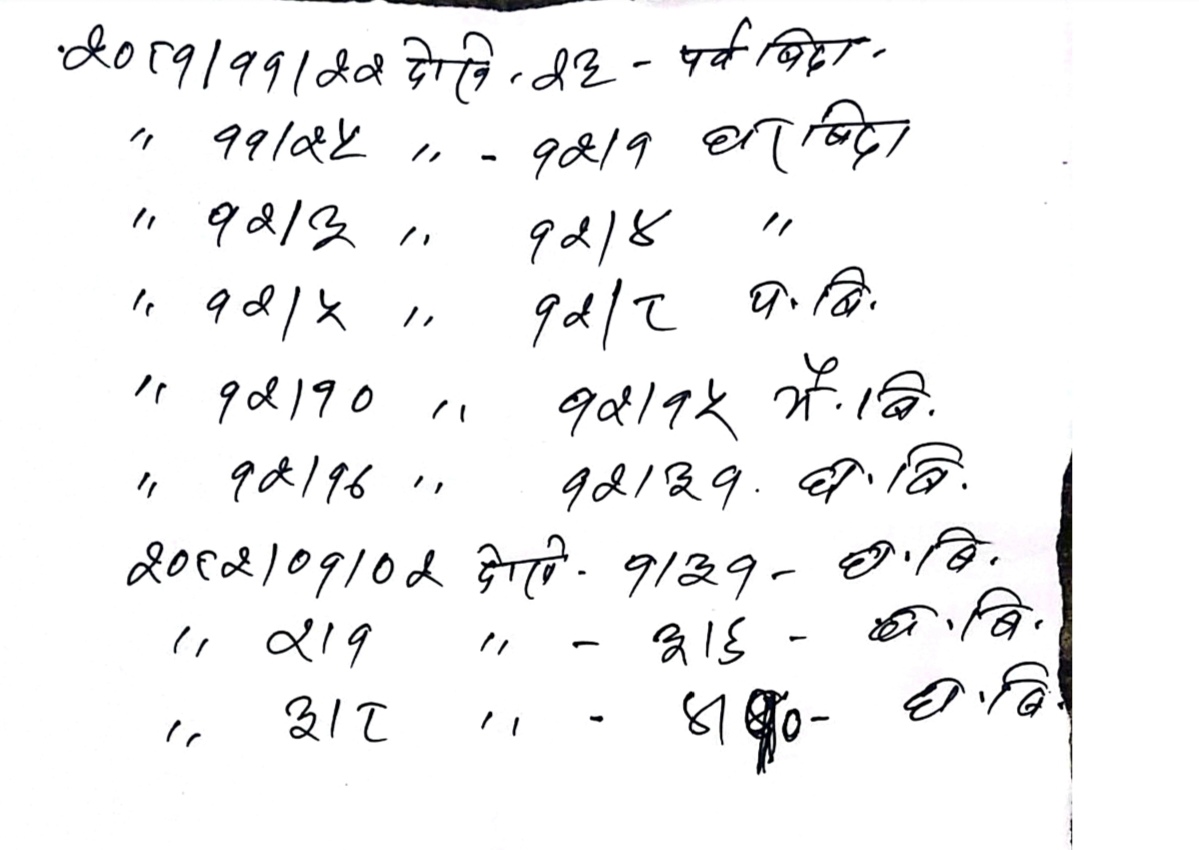 २०८१/११/२२ देखि . २३ - पर्व बिदा .
" ११/२५ " - १२/१ घर बिदा
" १२/३ " १२/४ "
" १२/५ " १२/८ प. बि.
" १२/१० " १२/१५ भै. बि.
" १२/१६ " १२/३१. घ. बि.
२०८२/०१/०२ देखि - १/३१ - घ. बि.
" २/१ " - ३/६ - घ. बि.
" ३/८ " - ४/१० - घ. बि.